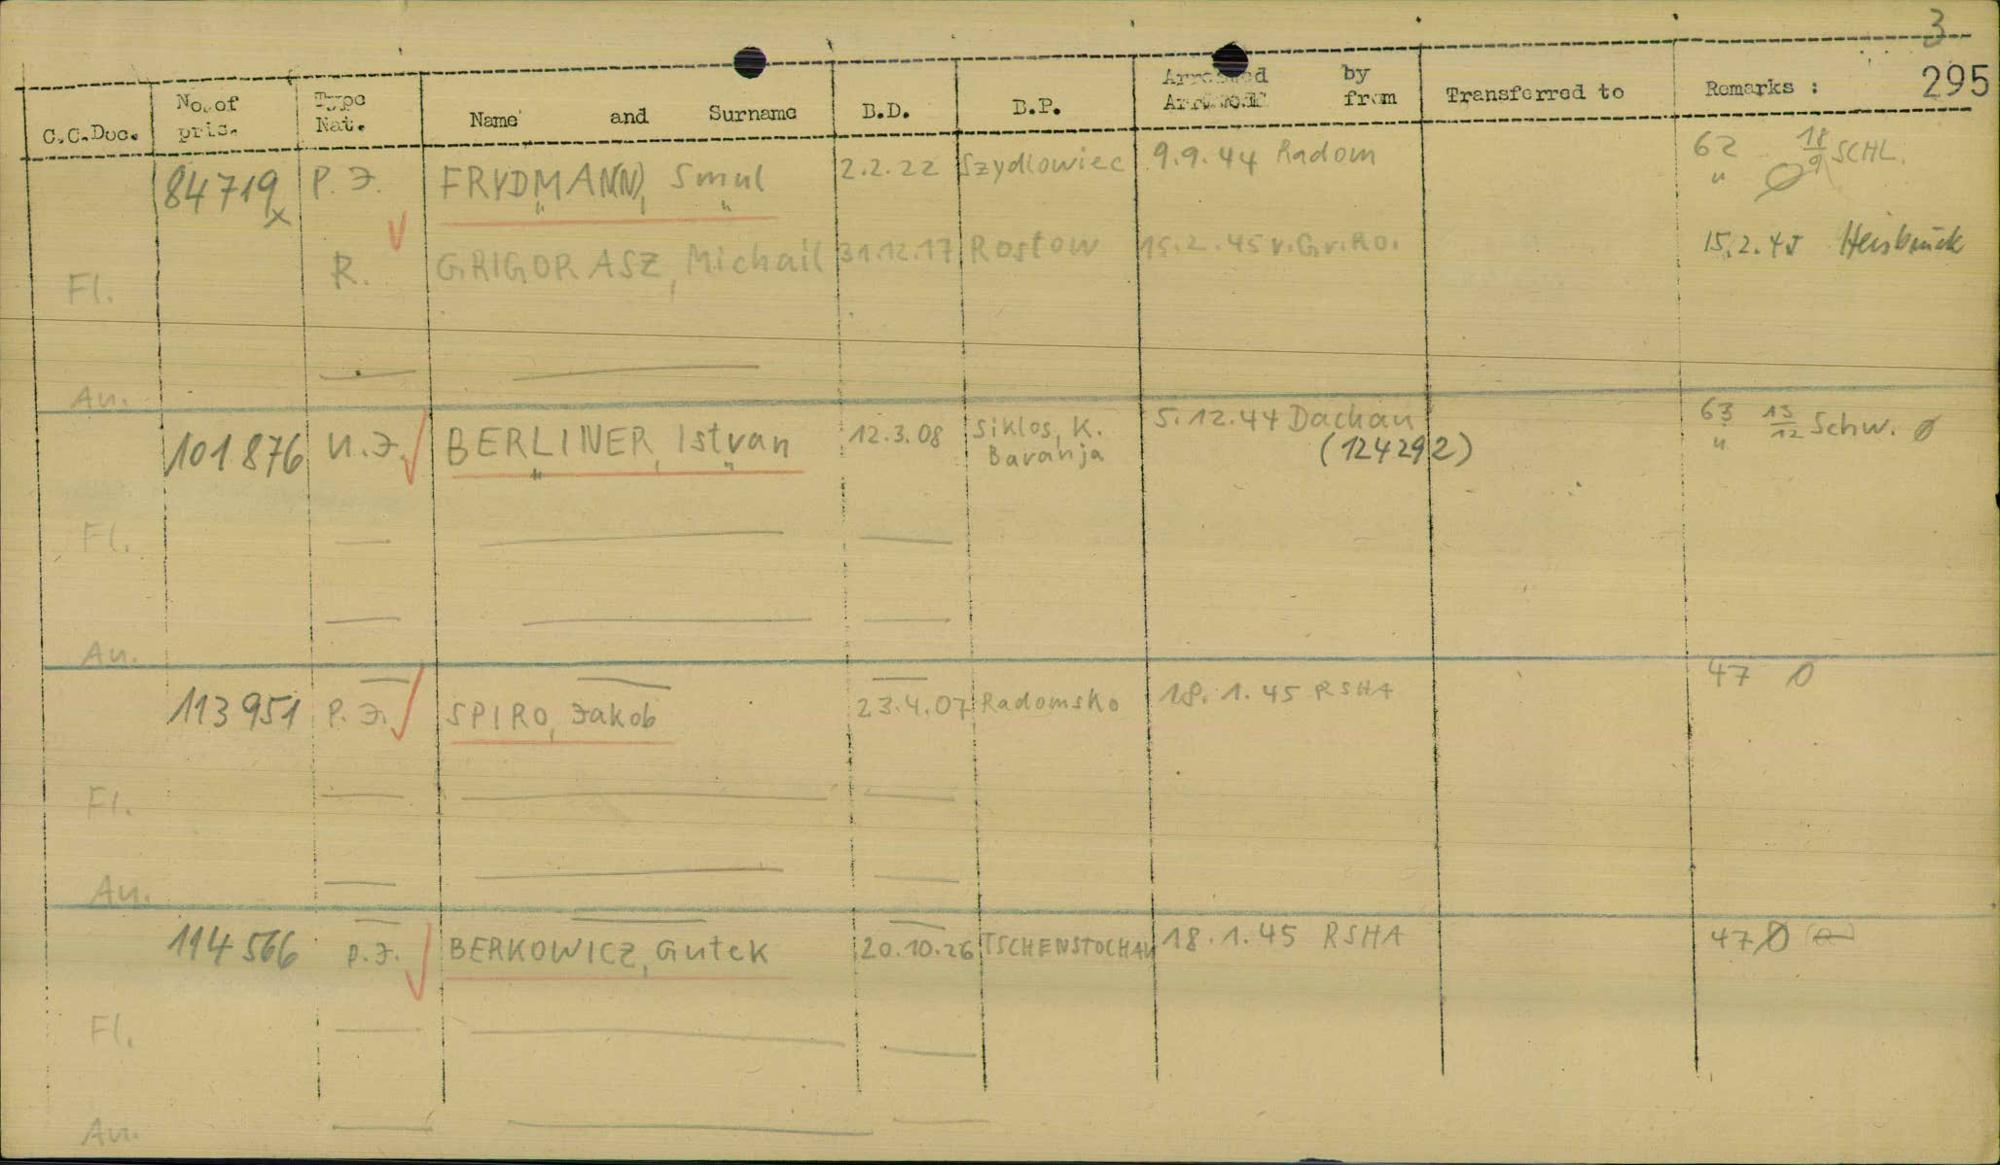 3
295
C.C.Doc. No. of pris. Type Nat. Name and Surname B.D. B.P. by from Transferred to Remarks :
84719 x P. J. FRYDMAN(N), Smul 2.2.22 Szydlowiec 9.9.44 Radom 62 18/9 SCHL.
"
Fl. R. GRIGORASZ, Michail 31.12.17 Rostow 15.2.45 v. Gr. Ro. 15.2.45
Au.
101876 U. J. BERLINER, Istvan 12.3.08 Siklos, K. Baranja 5.12.44 Dachau 63 13/12 Schw. Ø
(124292) "
Fl.
Au.
113951 P. J. SPIRO, Jakob 23.4.07 Radomsko 18.1.45 RSHA 47 0
Fl.
Au.
114566 P. J. BERKOWICZ, Gutek 20.10.26 TSCHENSTOCHAU 18.1.45 RSHA 47 Ø
Fl.
Au.